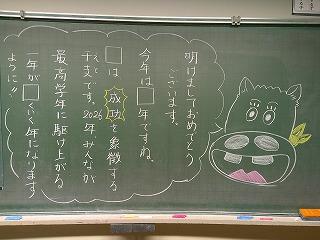 明けましておめでとう
ございます。
今年は□年ですね。
□は成功を象徴する
干支です。2026年みんなが
えと
最高学年に駆け上がる
一年が□くいく年になります
ように!!